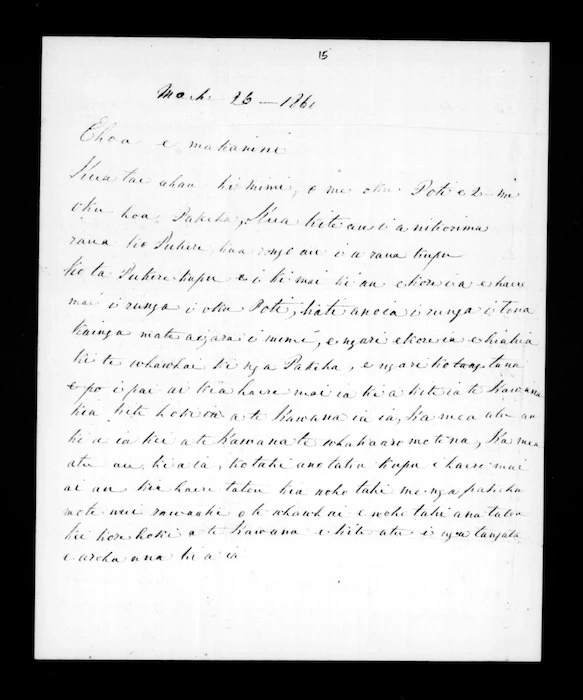 15
March 26 – 1861
Ehoa e makarini
Kua tae ahau ki mimi, e me oku Poti e 2 – me
oku hoa, Pakeha, Kua kite au i a nikorima
raua ko Pukere, kua rongo au i a raua kupu
ko ta Pukere kupu e i ki mai ki au ekore ia e haere
mai i runga i oku Poti, kate anoia i runga i tona
kainga mate ai ara i mimi, e ngari ekore ia e hiahia
ki te whawhai ki nga Pakeha, e ngari ko tana
e po i pai ai kia haere mai ia kia kite ia te Kawana
kia kite hoki a te Kawana ia ia, Ka mea atu au
ki a ia kei a te Kawana te whakaaro mo tena, Ka mea
atu au, ki a ia, ko taki ano taku kupu i haere mai
ai au kia haere tatou kia noho tahi me nga pakeha
mo te wui o te whawhai e noho tahi ana tatou
kei kore hoki a te Kawana e kite atu i nga tangata
e aroha ana ki a ia